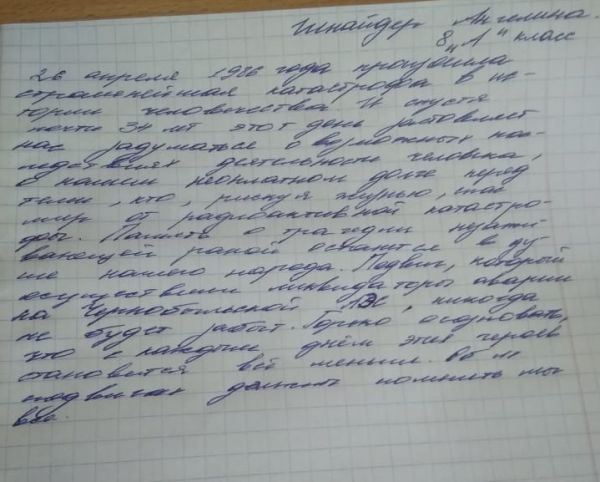 Шнайдер Ангелина.
8 "А" класс
26 апреля 1986 года произошла
страшнейшая катастрофа в ис-
тории человечества. И спустя
почти 34 лет этот день заставляет
нас задуматься о возможных пос-
ледствиях деятельности человека,
о нашем неоплатном долге перед
теми, кто, рискуя жизнью, спас
мир от радиоактивной катастро-
фы. Память о трагедии незажи-
вающей раной останется в ду-
ше нашего народа. Подвиг, который
осуществили ликвидаторы аварии
на Чернобыльской АЭС, никогда
не будет забыт. Горько осознавать,
что с каждым днём этих героев
становится всё меньше. Об их
подвигах должны помнить мы
все.